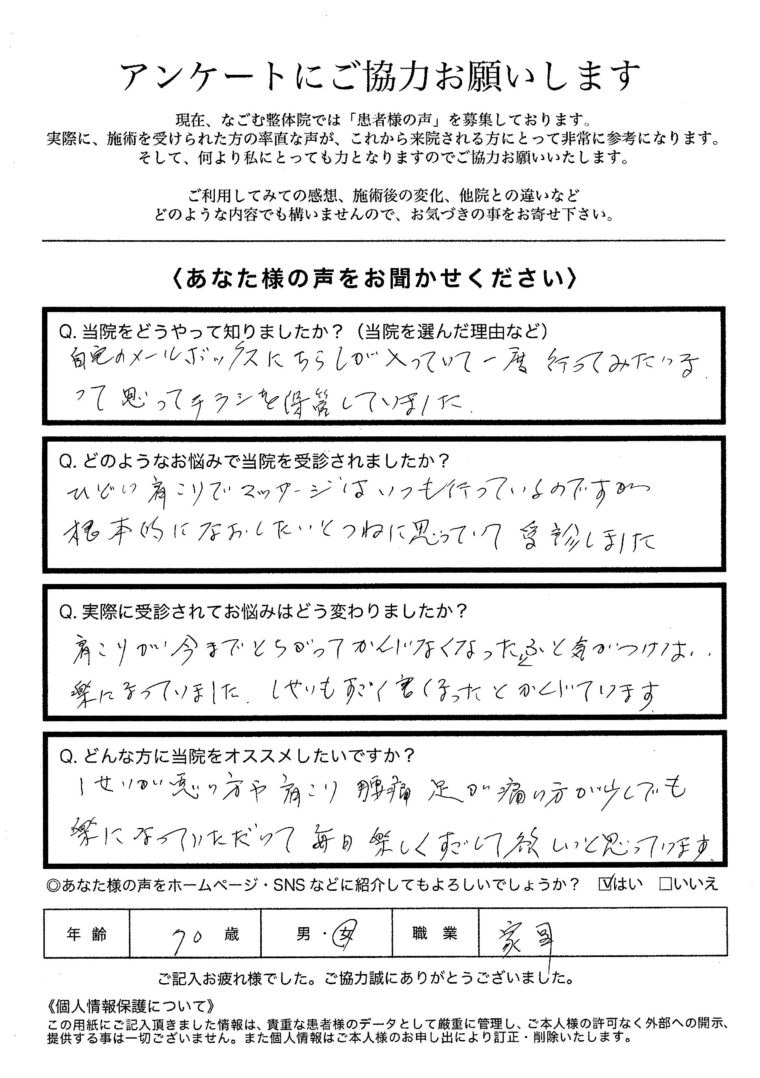 アンケートにご協力お願いします
現在、なごむ整体院では「患者様の声」を募集しております。
実際に、施術を受けられた方の率直な声が、これから来院される方にとって非常に参考になります。
そして、何より私にとっても力となりますのでご協力お願いいたします。
ご利用してみての感想、施術後の変化、他院との違いなど
どのような内容でも構いませんので、お気づきの事をお寄せ下さい。
〈あなた様の声をお聞かせください〉
Q. 当院をどうやって知りましたか?(当院を選んだ理由など)
自宅のメールボックスにちらしが入っていて一度 行ってみたいな
って思ってチラシを保管していました
Q. どのようなお悩みで当院を受診されましたか?
ひどい肩こりでマッサージはいつも行っているのですが
根本的になおしたいとつねに思っていて 受診しました
Q. 実際に受診されてお悩みはどう変わりましたか?
肩こりが今までとちがってかんじなくなった ふと気がつけば..
楽になっていました しせいもすごく良くなったとかんじています
Q. どんな方に当院をオススメしたいですか?
しせいが悪い方や肩こり 腰痛 足が痛い方が少しでも
楽になっていただいて毎日楽しくすごして欲しいと思っています
◎あなた様の声をホームページ・SNSなどに紹介してもよろしいでしょうか? ☑はい □いいえ
年齢 70 歳 男・女 職業 家事
ご記入お疲れ様でした。ご協力誠にありがとうございました。
《個人情報保護について》
この用紙にご記入頂きました情報は、貴重な患者様のデータとして厳重に管理し、ご本人様の許可なく外部への開示、
提供する事は一切ございません。また個人情報はご本人様のお申し出により訂正・削除いたします。